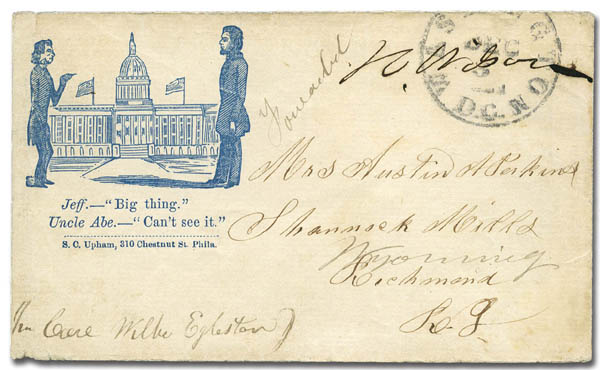 Jeff.—“Big thing.”
Uncle Abe.—“Can't see it.”
S. C. Upham, 310 Chestnut St. Phila.
WASHINGTON
DEC
D.C.
Mrs Austin A Perkins
Shannock Mills
Wyoming
Richmond
R I
Care Wilbr Egleston